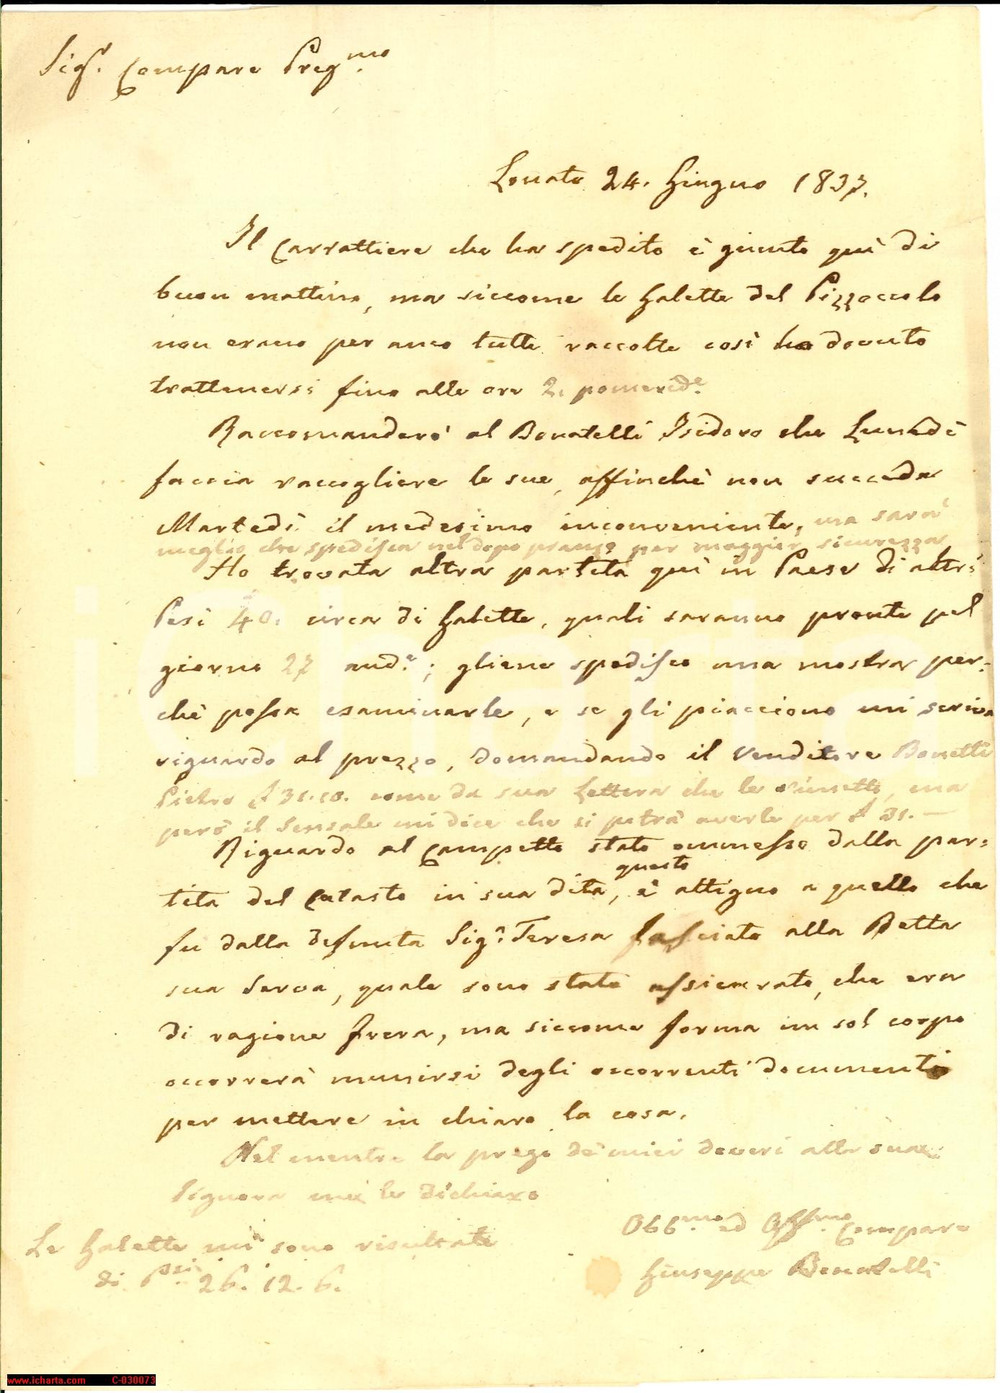 Sig.r Compare Preg.mo
Lonato 24. Giugno 1837.
Il Carrattiere che ha spedito è giunto quì di
buon mattino, ma siccome le Galette del Pizzoccolo
non erano per anco tutte raccolte così ha dovuto
trattenersi fino alle ore 2. pomerid.e
Raccomanderò al Bonatelli Isidoro che Lunedì
faccia raccogliere le sue, affinchè non succeda
Martedì il medesimo inconveniente, ma sarà
meglio che spedisca nel dopo pranzo per maggior sicurezza
Ho trovata altra partita quì in Paese di altri
Pesi 40. circa di Galette, quali saranno pronte pel
giorno 27 and.e; gliene spedisco una mostra per=
chè possa esaminarle, e se gli piacciono mi scriva
riguardo al prezzo, domandando il Venditore Bonatti
Pietro £ 31.10. come da sua Lettera che le rimetto, ma
però il Sensale mi dice che si potrà averle per £ 31. —
Riguardo al Campetto stato ommesso dalla par=
tita del Catasto in sua Dita, questo è attiguo a quello che
fu dalla defunta Sig.a Teresa lasciato alla Betta
sua Serva, quale sono stato assicurato, che era
di ragione Frera, ma siccome forma un sol corpo
occorrerà munirsi degli occorrenti documenti
per mettere in chiaro la cosa.
Nel mentre la prego de' miei doveri alla sua
Signora me le dichiaro
Obb.mo ed Aff.mo Compare
Giuseppe Bonatelli
Le Galette mi sono risultate
di Psi 26. 12. 6.
www.icharta.com C-030073